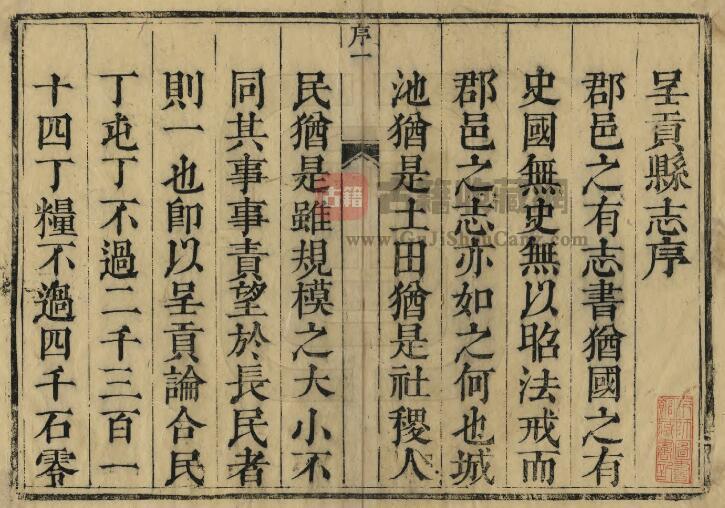 呈貢縣志序
郡邑之有志書猶國之有
史國無史無以昭法戒而
郡邑之志亦如之何也城
池猶是土田猶是社稷人
序一
民猶是雖規模之大小不
同其事事責望於長民者
則一也即以呈貢論合民
丁屯丁不過二千三百一
十四丁糧不過四千石零
古籍
www.GuJiShuCang.com